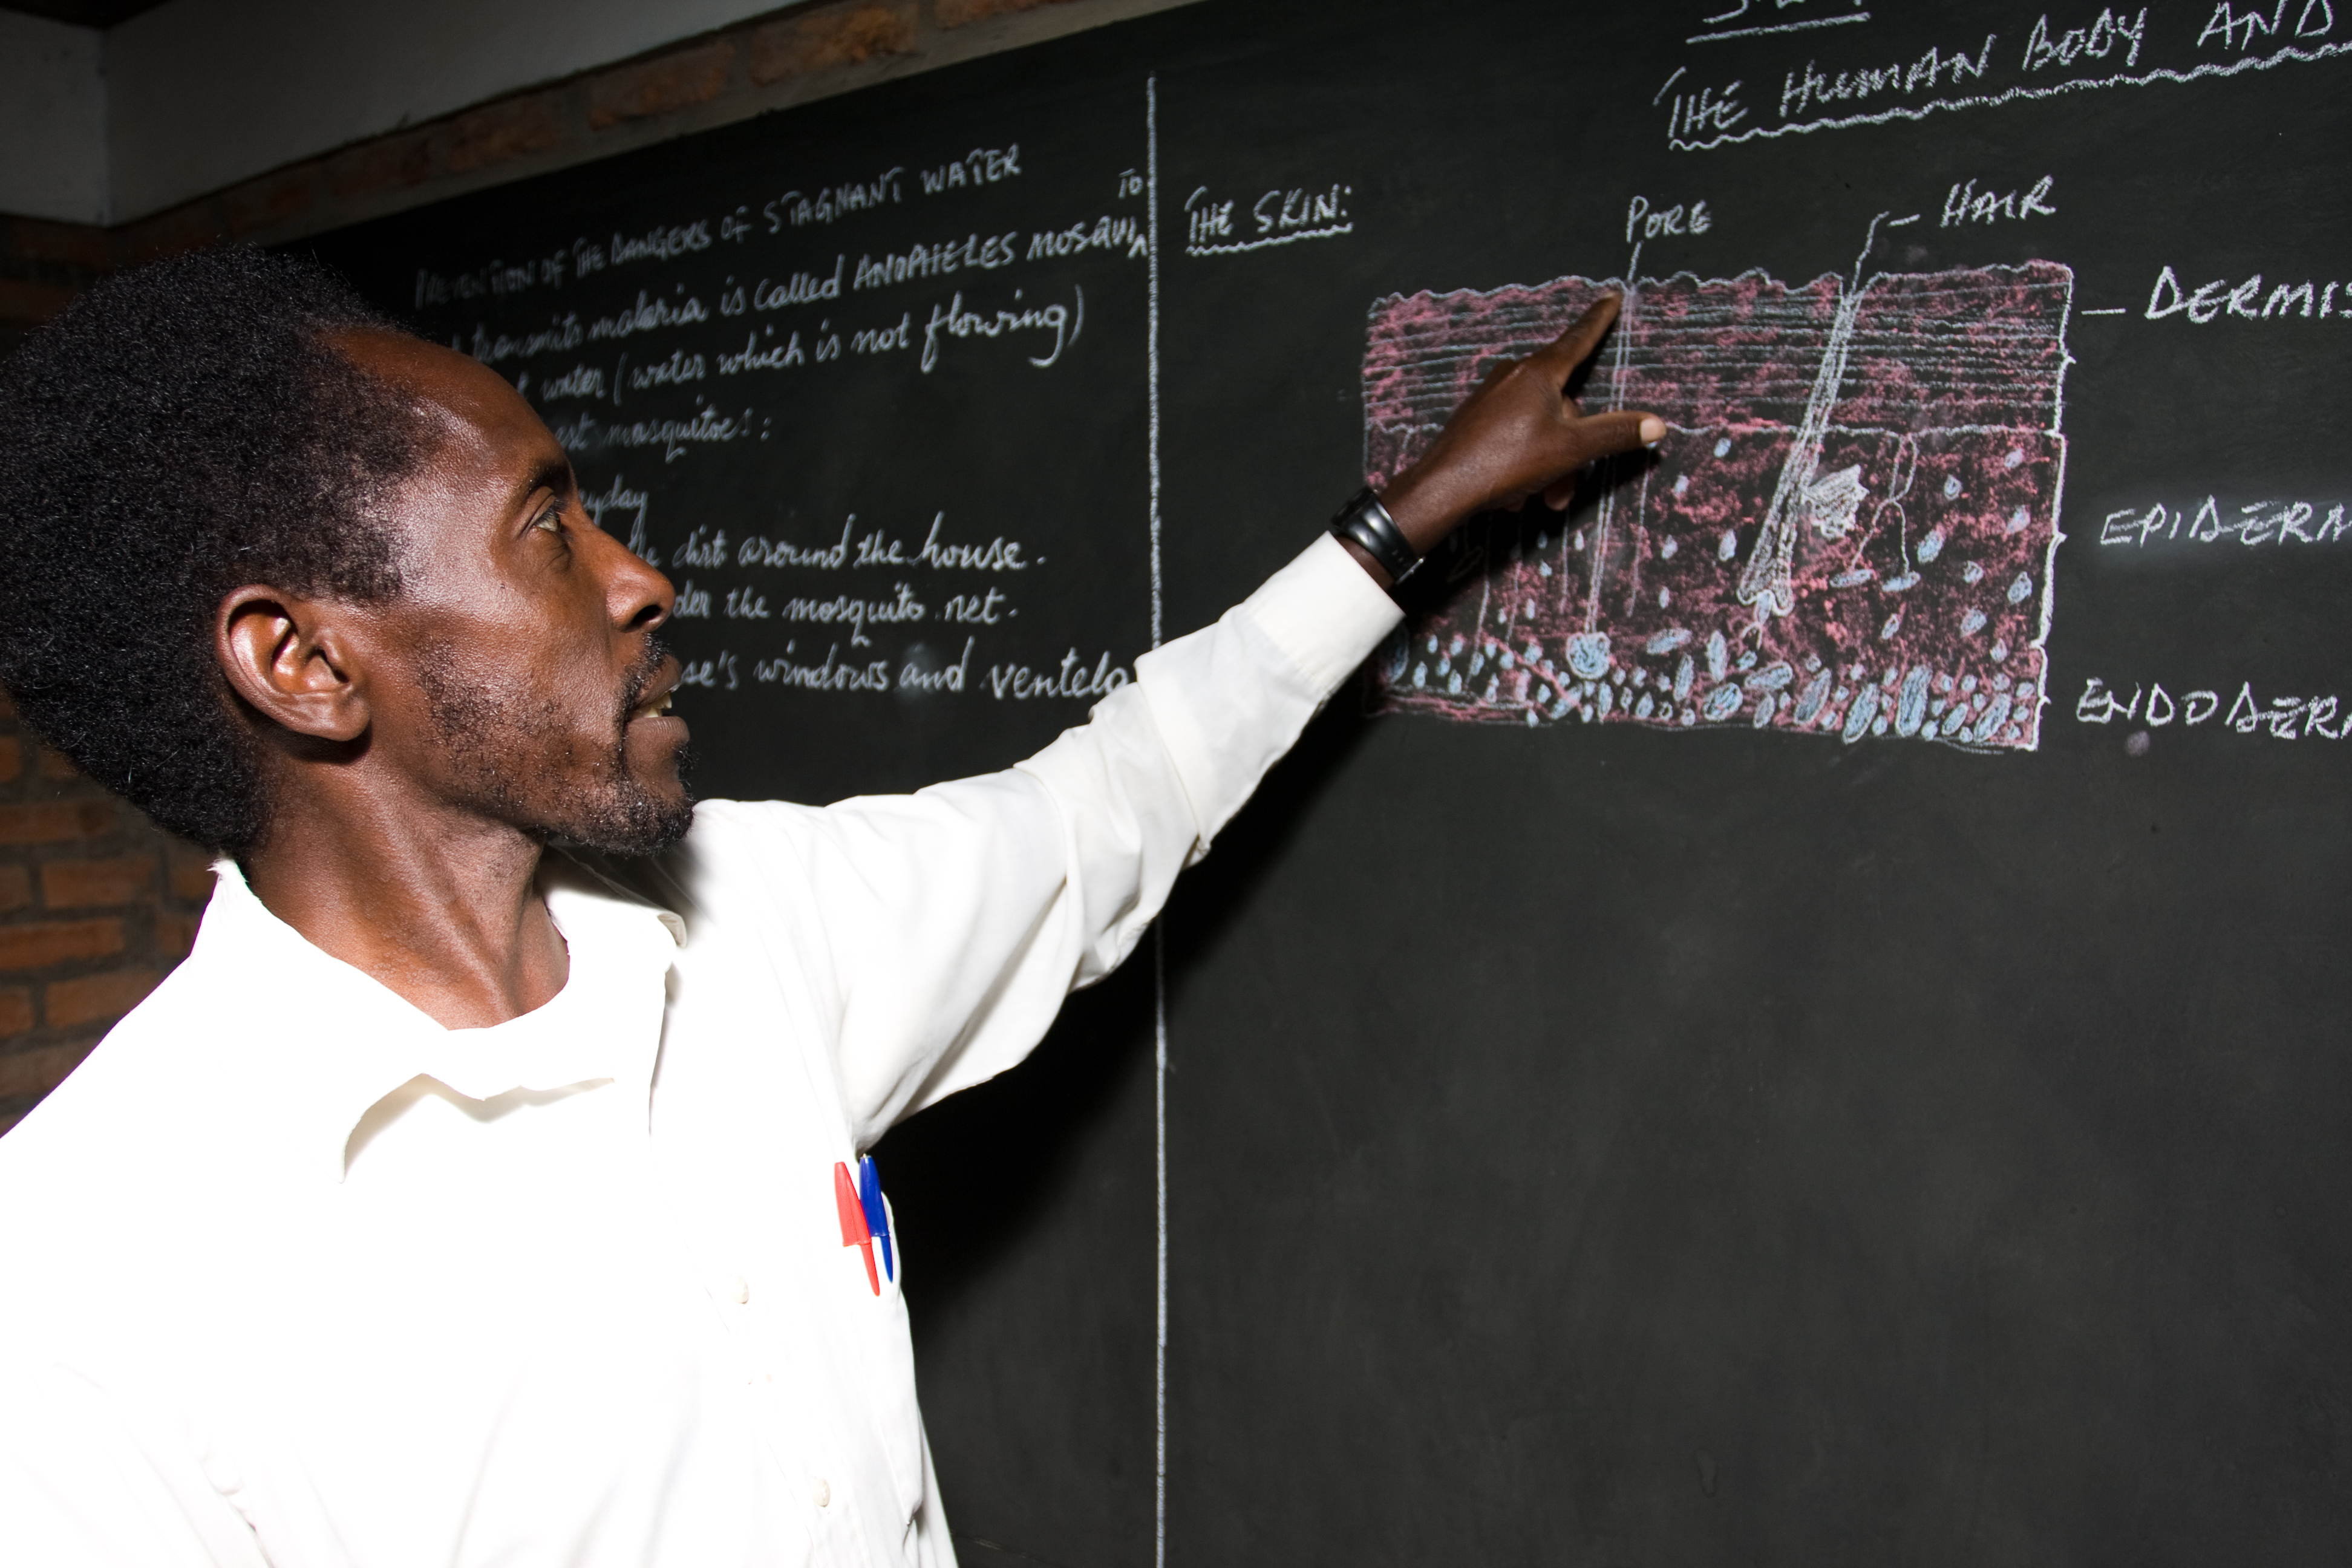 PREVENTION OF THE DANGERS OF STAGNANT WATER
transmits malaria is called ANOPHELES MOSQUITO
water (water which is not flowing)
mosquitoes:
dirt around the house.
the mosquito net.
windows and ventela
THE HUMAN BODY AND
THE SKIN:
PORE
HAIR
DERMIS
EPIDERM
ENDODERM